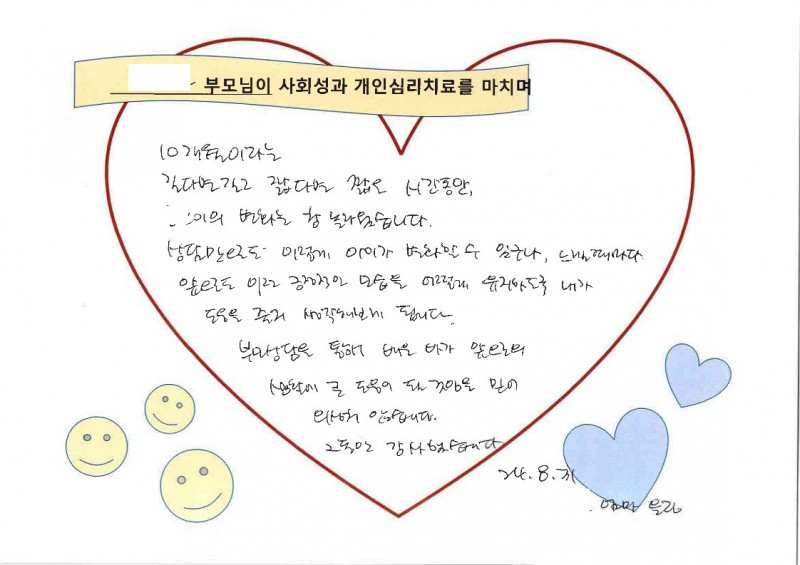 부모님이 사회성과 개인심리치료를 마치며
10개월이라는
길다면길고 짧다면 짧은 시간동안,
이의 변화는 참 놀라웠습니다.
상담만으로도 이렇게 아이가 변화할 수 있구나, 느낄때마다
앞으로도 이런 긍정적인 모습을 어떻게 유지하도록 내가
도움을 줄지 생각해보게 됩니다.
부모상담을 통해 배운 바가 앞으로의
생활에 큰 도움이 될 것임을 믿어
의심치 않습니다.
그동안 감사했습니다
24.8.31
엄마